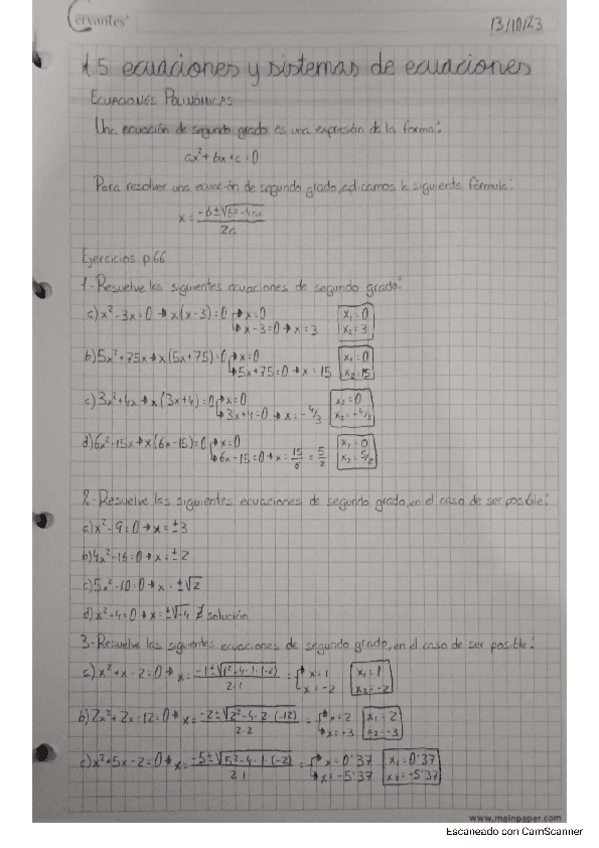 Cervantes
13/10/23
t.5 ecuaciones y sistemas de ecuaciones
ECUACIONES POLINÓMICAS
Una ecuación de segundo grado es una expresión de la forma:
ax²+bx+c=0
Para resolver una ecuación de segundo grado, aplicamos la siguiente fórmula:
x = -b±√b²-4ac / 2a
Ejercicios p.66
1-Resuelve las siguientes ecuaciones de segundo grado:
a) x²-3x=0 → x(x-3)=0 → x=0 x₁=0
→ x-3=0 → x=3 x₂=3
b) 5x²+75x → x(5x+75)=0 → x=0 x₁=0
→ 5x+75=0 → x=15 x₂=15
c) 3x²+4x → x(3x+4)=0 → x=0 x₁=0
→ 3x+4=0 → x=-4/3 x₂=-4/3
d) 6x²-15x → x(6x-15)=0 → x=0 x₁=0
→ 6x-15=0 → x=15/6=5/2 x₂=5/2
2-Resuelve las siguientes ecuaciones de segundo grado, en el caso de ser posible:
a) x²-9=0 → x=±3
b) 4x²-16=0 → x=±2
c) 5x²-10=0 → x=±√2
d) x²+4=0 → x=±√-4 ∄ solución
3-Resuelve las siguientes ecuaciones de segundo grado, en el caso de ser posible:
a) x²+x-2=0 → x= -1±√1²-4·1·(-2) / 2·1 = → x=1 x₁=1
→ x=-2 x₂=-2
b) 2x²+2x-12=0 → x= -2±√2²-4·2·(-12) / 2·2 = → x=2 x₁=2
→ x=-3 x₂=-3
c) x²+5x-2=0 → x= -5±√5²-4·1·(-2) / 2·1 = → x=0'37 x₁=0'37
→ x=-5'37 x₂=-5'37
www.mainpaper.com
Escaneado con CamScanner